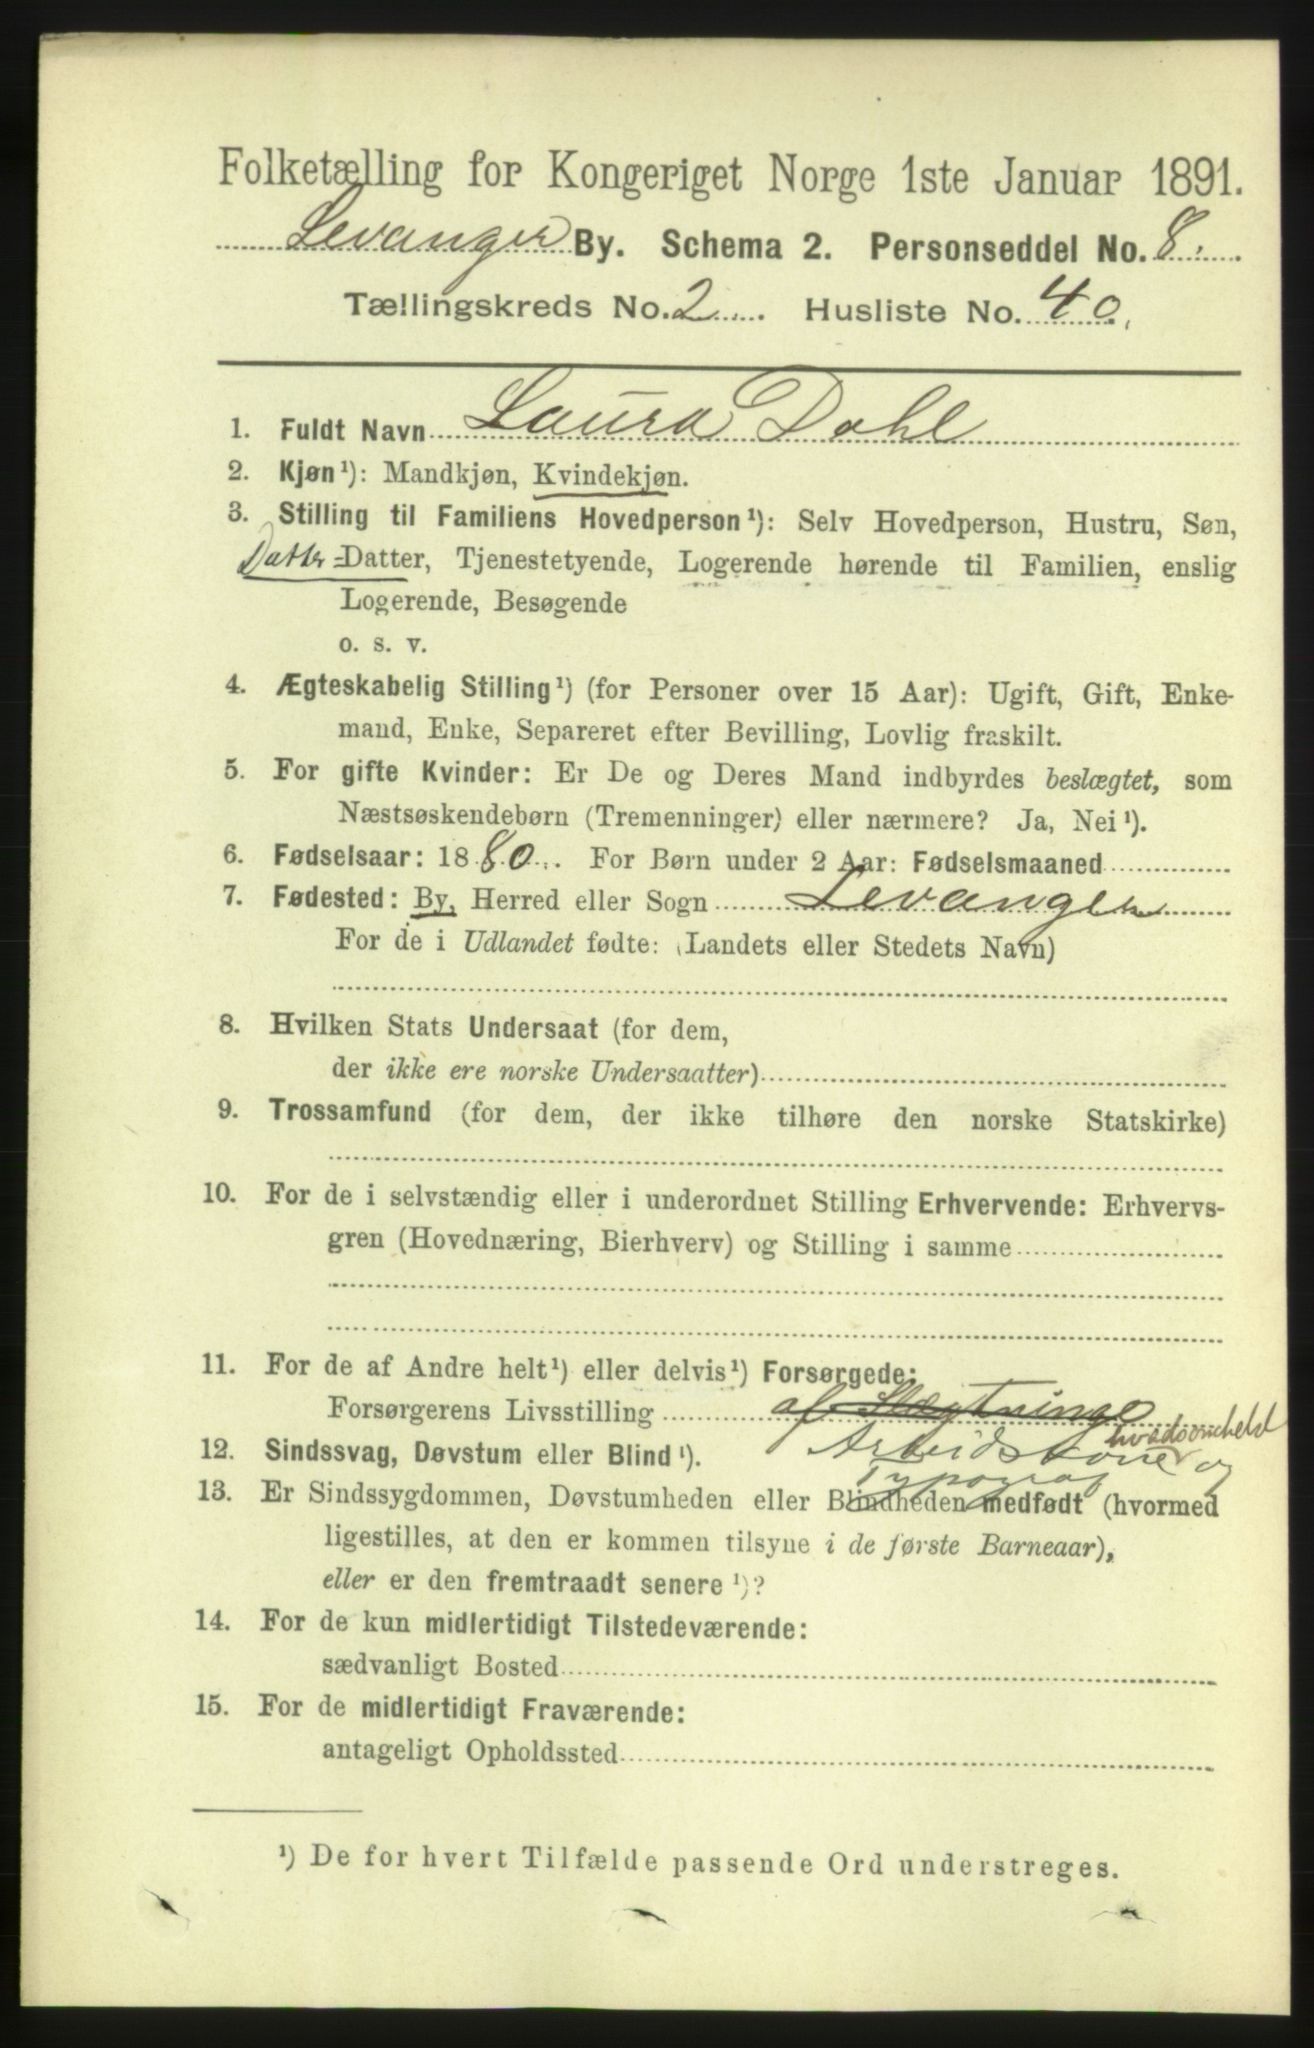 Folketælling for Kongeriget Norge 1ste Januar 1891.
Levanger By. Schema 2. Personseddel No. 8.
Tællingskreds No. 2 Husliste No. 40.
1. Fuldt Navn Laura Dahl
2. Kjøn¹): Mandkjøn, Kvindekjøn.
3. Stilling til Familiens Hovedperson¹): Selv Hovedperson, Hustru, Søn,
Datter-Datter, Tjenestetyende, Logerende hørende til Familien, enslig
Logerende, Besøgende
o. s. v.
4. Ægteskabelig Stilling¹) (for Personer over 15 Aar): Ugift, Gift, Enke-
mand, Enke, Separeret efter Bevilling, Lovlig fraskilt.
5. For gifte Kvinder: Er De og Deres Mand indbyrdes beslægtet, som
Næstsøskendebørn (Tremenninger) eller nærmere? Ja, Nei¹).
6. Fødselsaar: 1880. For Børn under 2 Aar: Fødselsmaaned
7. Fødested: By, Herred eller Sogn Levanger
For de i Udlandet fødte: (Landets eller Stedets Navn)
8. Hvilken Stats Undersaat (for dem,
der ikke ere norske Undersaatter)
9. Trossamfund (for dem, der ikke tilhøre den norske Statskirke)
10. For de i selvstændig eller i underordnet Stilling Erhvervende: Erhvervs-
gren (Hovednæring, Bierhverv) og Stilling i samme
11. For de af Andre helt¹) eller delvis¹) Forsørgede:
Forsørgerens Livsstilling af Slægtninge
12. Sindssvag, Døvstum eller Blind¹). Arbeidskone og
Typograf
13. Er Sindssygdommen, Døvstumheden eller Blindheden medfødt (hvormed
ligestilles, at den er kommen tilsyne i de første Barneaar),
eller er den fremtraadt senere¹)?
14. For de kun midlertidigt Tilstedeværende:
sædvanligt Bosted
15. For de midlertidigt Fraværende:
antageligt Opholdssted
¹) De for hvert Tilfælde passende Ord understreges.